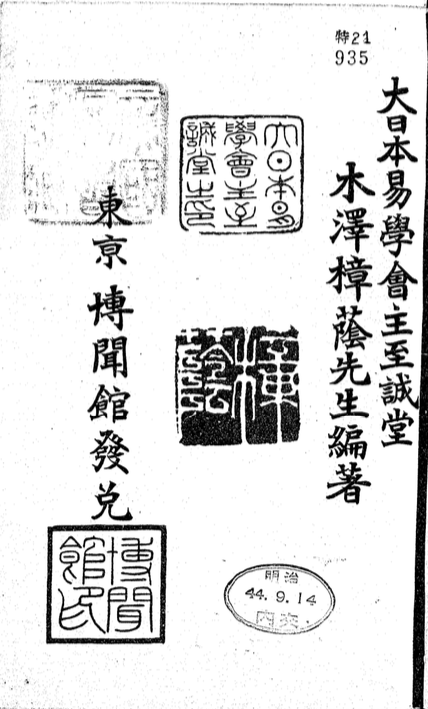 特21
935
大日本易學會主至誠堂
木澤樟蔭先生編著
大日本易
學會主至
誠堂之印
明治
44.9.14
内交
東亰博聞館發兌
博聞
館印